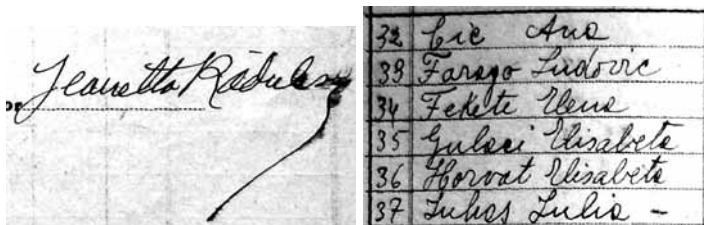 Jeanetta Rădulescu
32 Cic Ana
33 Farago Ludovic
34 Fekete Elena
35 Gulaci Elisabeta
36 Horvat Elisabeta
37 Juhas Iulia -